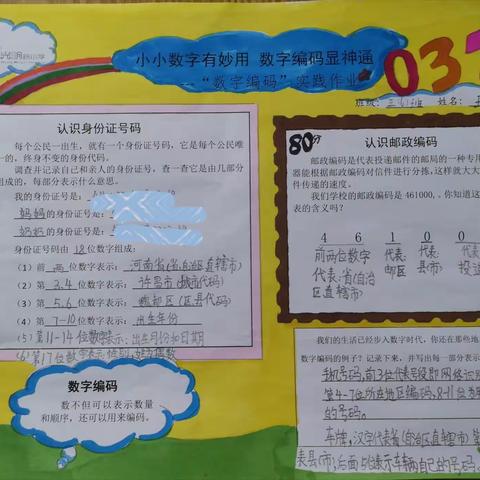 小小数字有妙用 数字编码显神通
——“数字编码”实践作业
037
班级：三(1)班 姓名：
认识身份证号码
每个公民一出生，就有一个身份证号码，它是每个公民唯
一的，终身不变的身份代码。
调查并记录自己和亲人的身份证号，查一查它是由几部分
组成的，每部分表示什么意思。
我的身份证号是：
妈妈的身份证号是：
奶奶的身份证号是：
身份证号码由 18位数字组成：
(1) 前 两 位数字表示：河南省(省,自治区直辖市)
(2) 第 3.4 位数字表示：许昌市(城市代码)
(3) 第 5.6 位数字表示：魏都区(区县代码)
(4) 第 7-10 位数字表示：出生年份
(5) 第11-14位数字表示：出生月份和日期
(6) 第17位数字表示
数字编码
数不但可以表示数量
和顺序，还可以用来编码。
80分
认识邮政编码
邮政编码是代表投递邮件的邮局的一种专用
器能根据邮政编码对信件进行分拣，这样就大大
件传递的速度。
我们学校的邮政编码是 461000，你知道这
表的含义吗？
4 6 1 0 0
前两位数字 代表 代表 代
代表：省(自治 邮区 县(市) 投
区直辖市)
我们的生活已经步入数字时代，你还在那些地
数字编码的例子？记录下来，并写出每一部分表示
手机号码，前3位代表号段即网络识
第4-7位所在地区编码，8-11位为
的号码。
车牌，汉字代表省(自治区直辖市)第
表县(市)后面5位表示车辆自己的号码